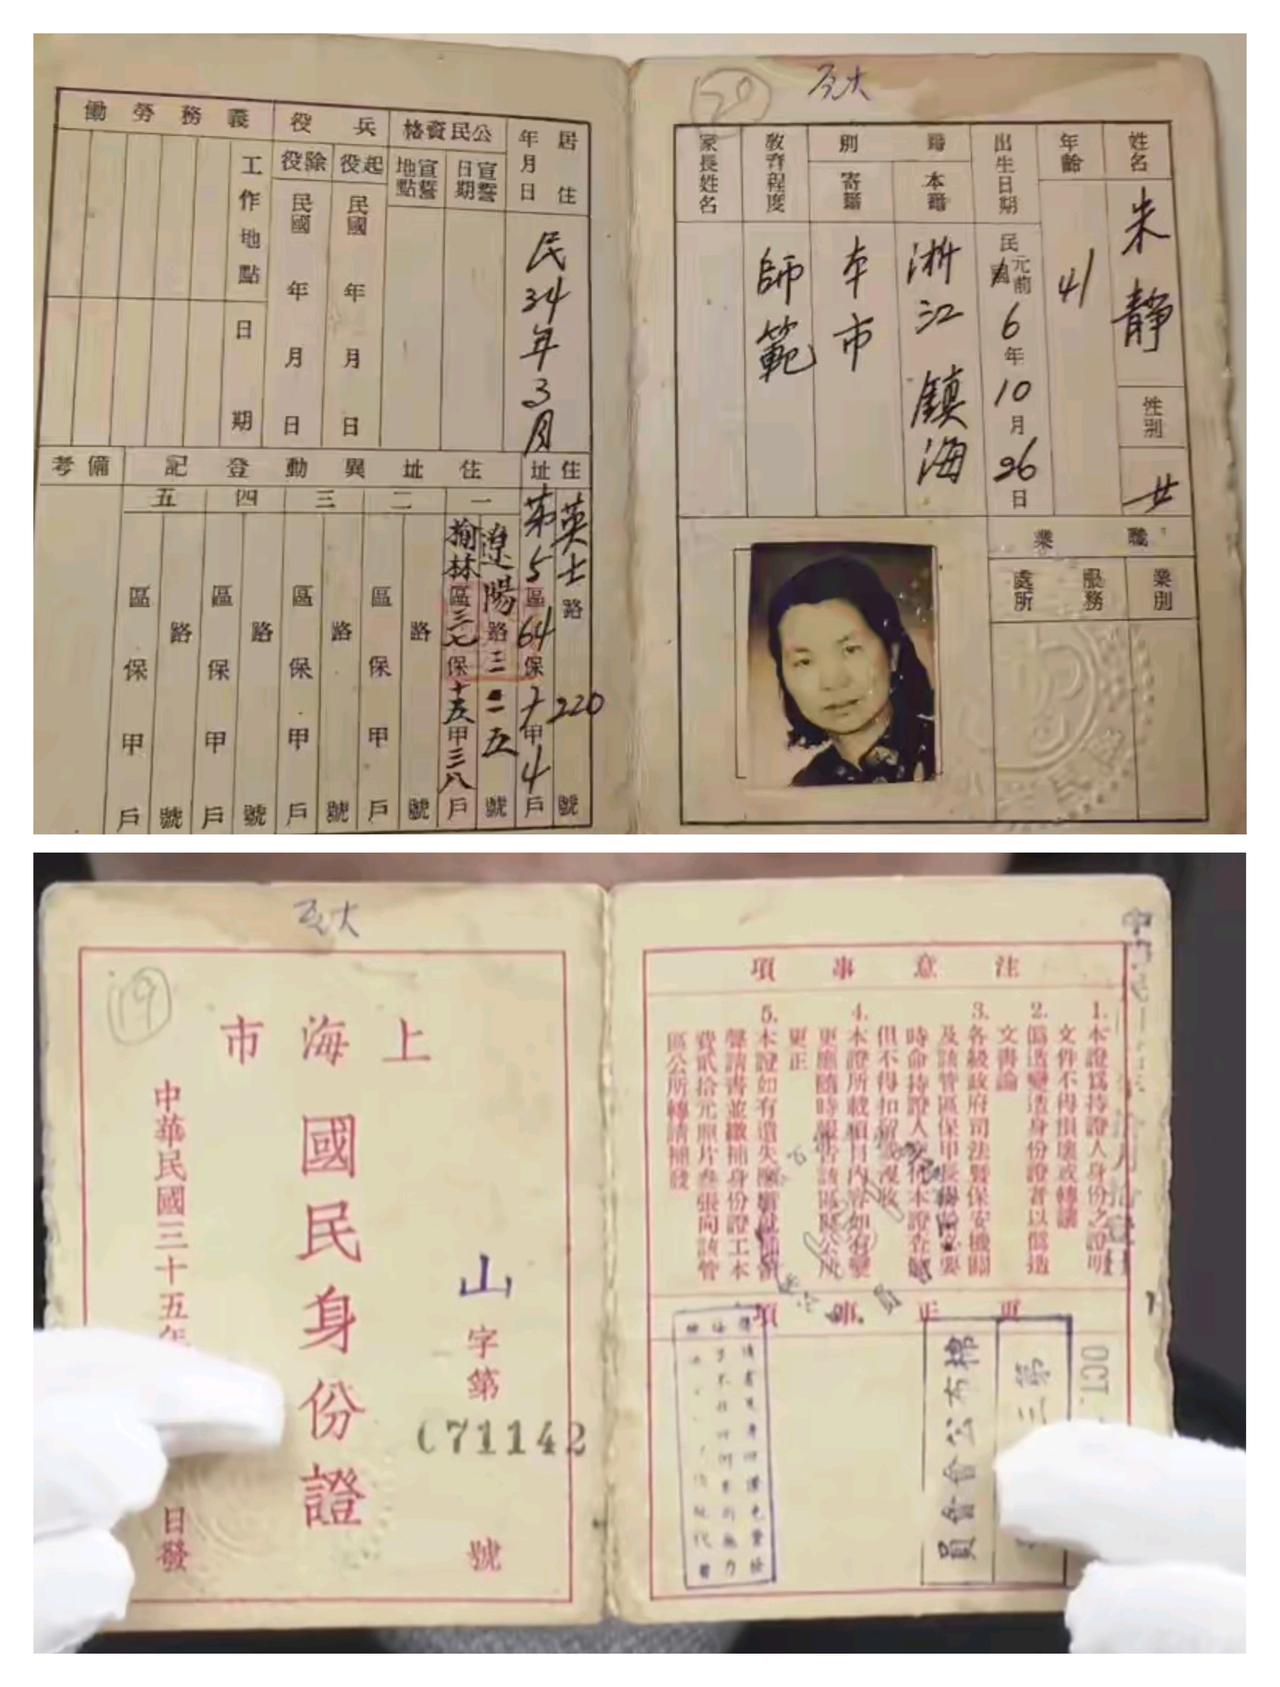 反大
20
姓名 朱靜
性別 女
年齡 41
出生日期 民國元前6年10月26日
籍別
本籍 浙江鎮海
寄籍 本市
教育程度 師範
家長姓名
職業
業別
服務處所
居住年月日 民34年3月
公民資格
宣誓日期
宣誓地點
兵役
起役 民國 年 月 日
除役 民國 年 月 日
義務勞働
工作地點
日期
住址 英士路220號
第5區64保十甲4戶
住址異動登記
一 遼陽路三二五號
榆林區三七保十五甲三八戶
二 路 號
區 保 甲 戶
三 路 號
區 保 甲 戶
四 路 號
區 保 甲 戶
五 路 號
區 保 甲 戶
備考
19
上海市
國民身份證
山字第
071142
號
中華民國三十五年
日發
注意事項
1.本證爲持證人身份之證明
文件不得損壞或轉讓
2.僞造變造身份證者以僞造
文書論
3.各級政府司法暨保安機關
及該管區保甲長得於必要
時命持證人交付本證查驗
但不得扣留或沒收
4.本證所載項目內容如有變
更應隨時報告該區公所
更正
5.本證如有遺失應
聲請書並繳補身份證工本
費貳拾元照片叁張向該管
區公所轉請補發
更正事項
OCT.
第三
棉布公會會員